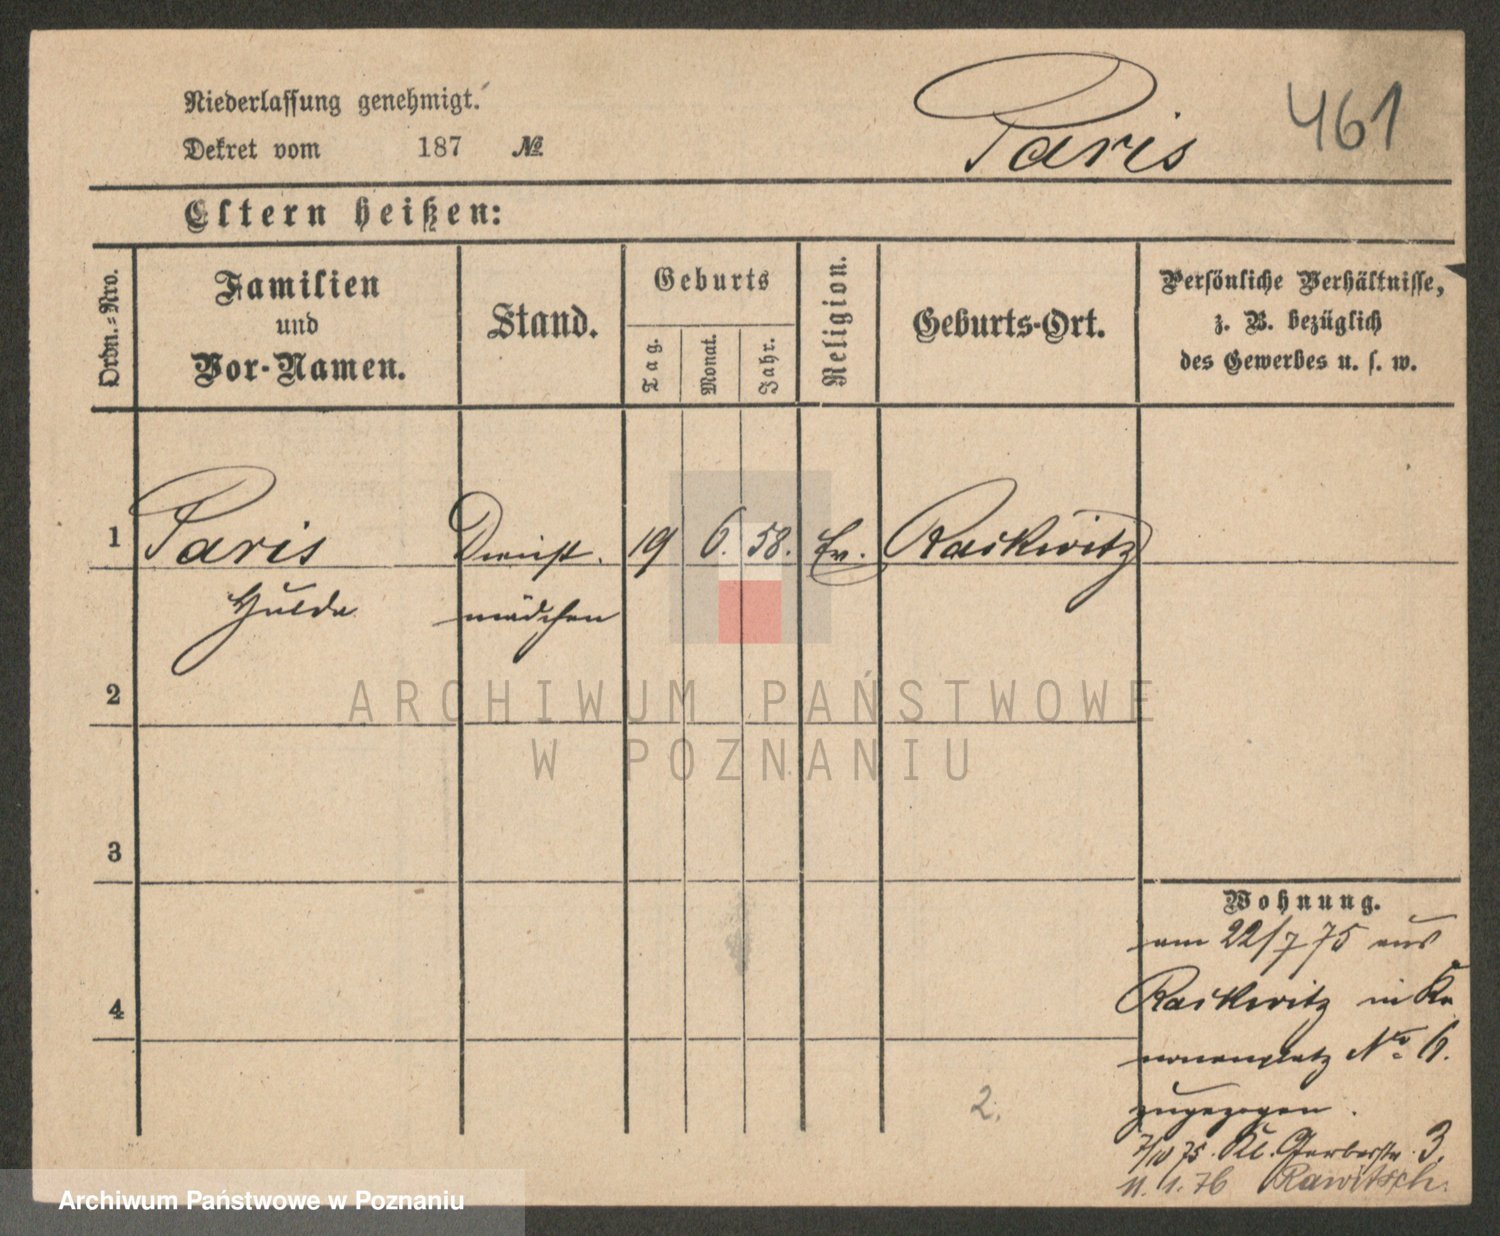 Niederlassung genehmigt.
Dekret vom 187 №
Paris
461
Eltern heißen:
Ordn.=Nro.
Familien
und
Vor-Namen.
Stand.
Geburts
Tag.
Monat.
Jahr.
Religion.
Geburts-Ort.
Persönliche Verhältnisse,
z. B. bezüglich
des Gewerbes u. s. w.
1 Paris Dienst. 19 6. 58. Ev. Raikwitz
Hulda mädchen
2
ARCHIWUM PAŃSTWOWE
W POZNANIU
3
4
Wohnung.
am 22/7 75 aus
Raikwitz in Ka
nonenplatz No 6.
zugezogen.
7/10 75. Kl. Gerberstr. 3.
11. 1. 76 Rawitsch.
2.
Archiwum Państwowe w Poznaniu